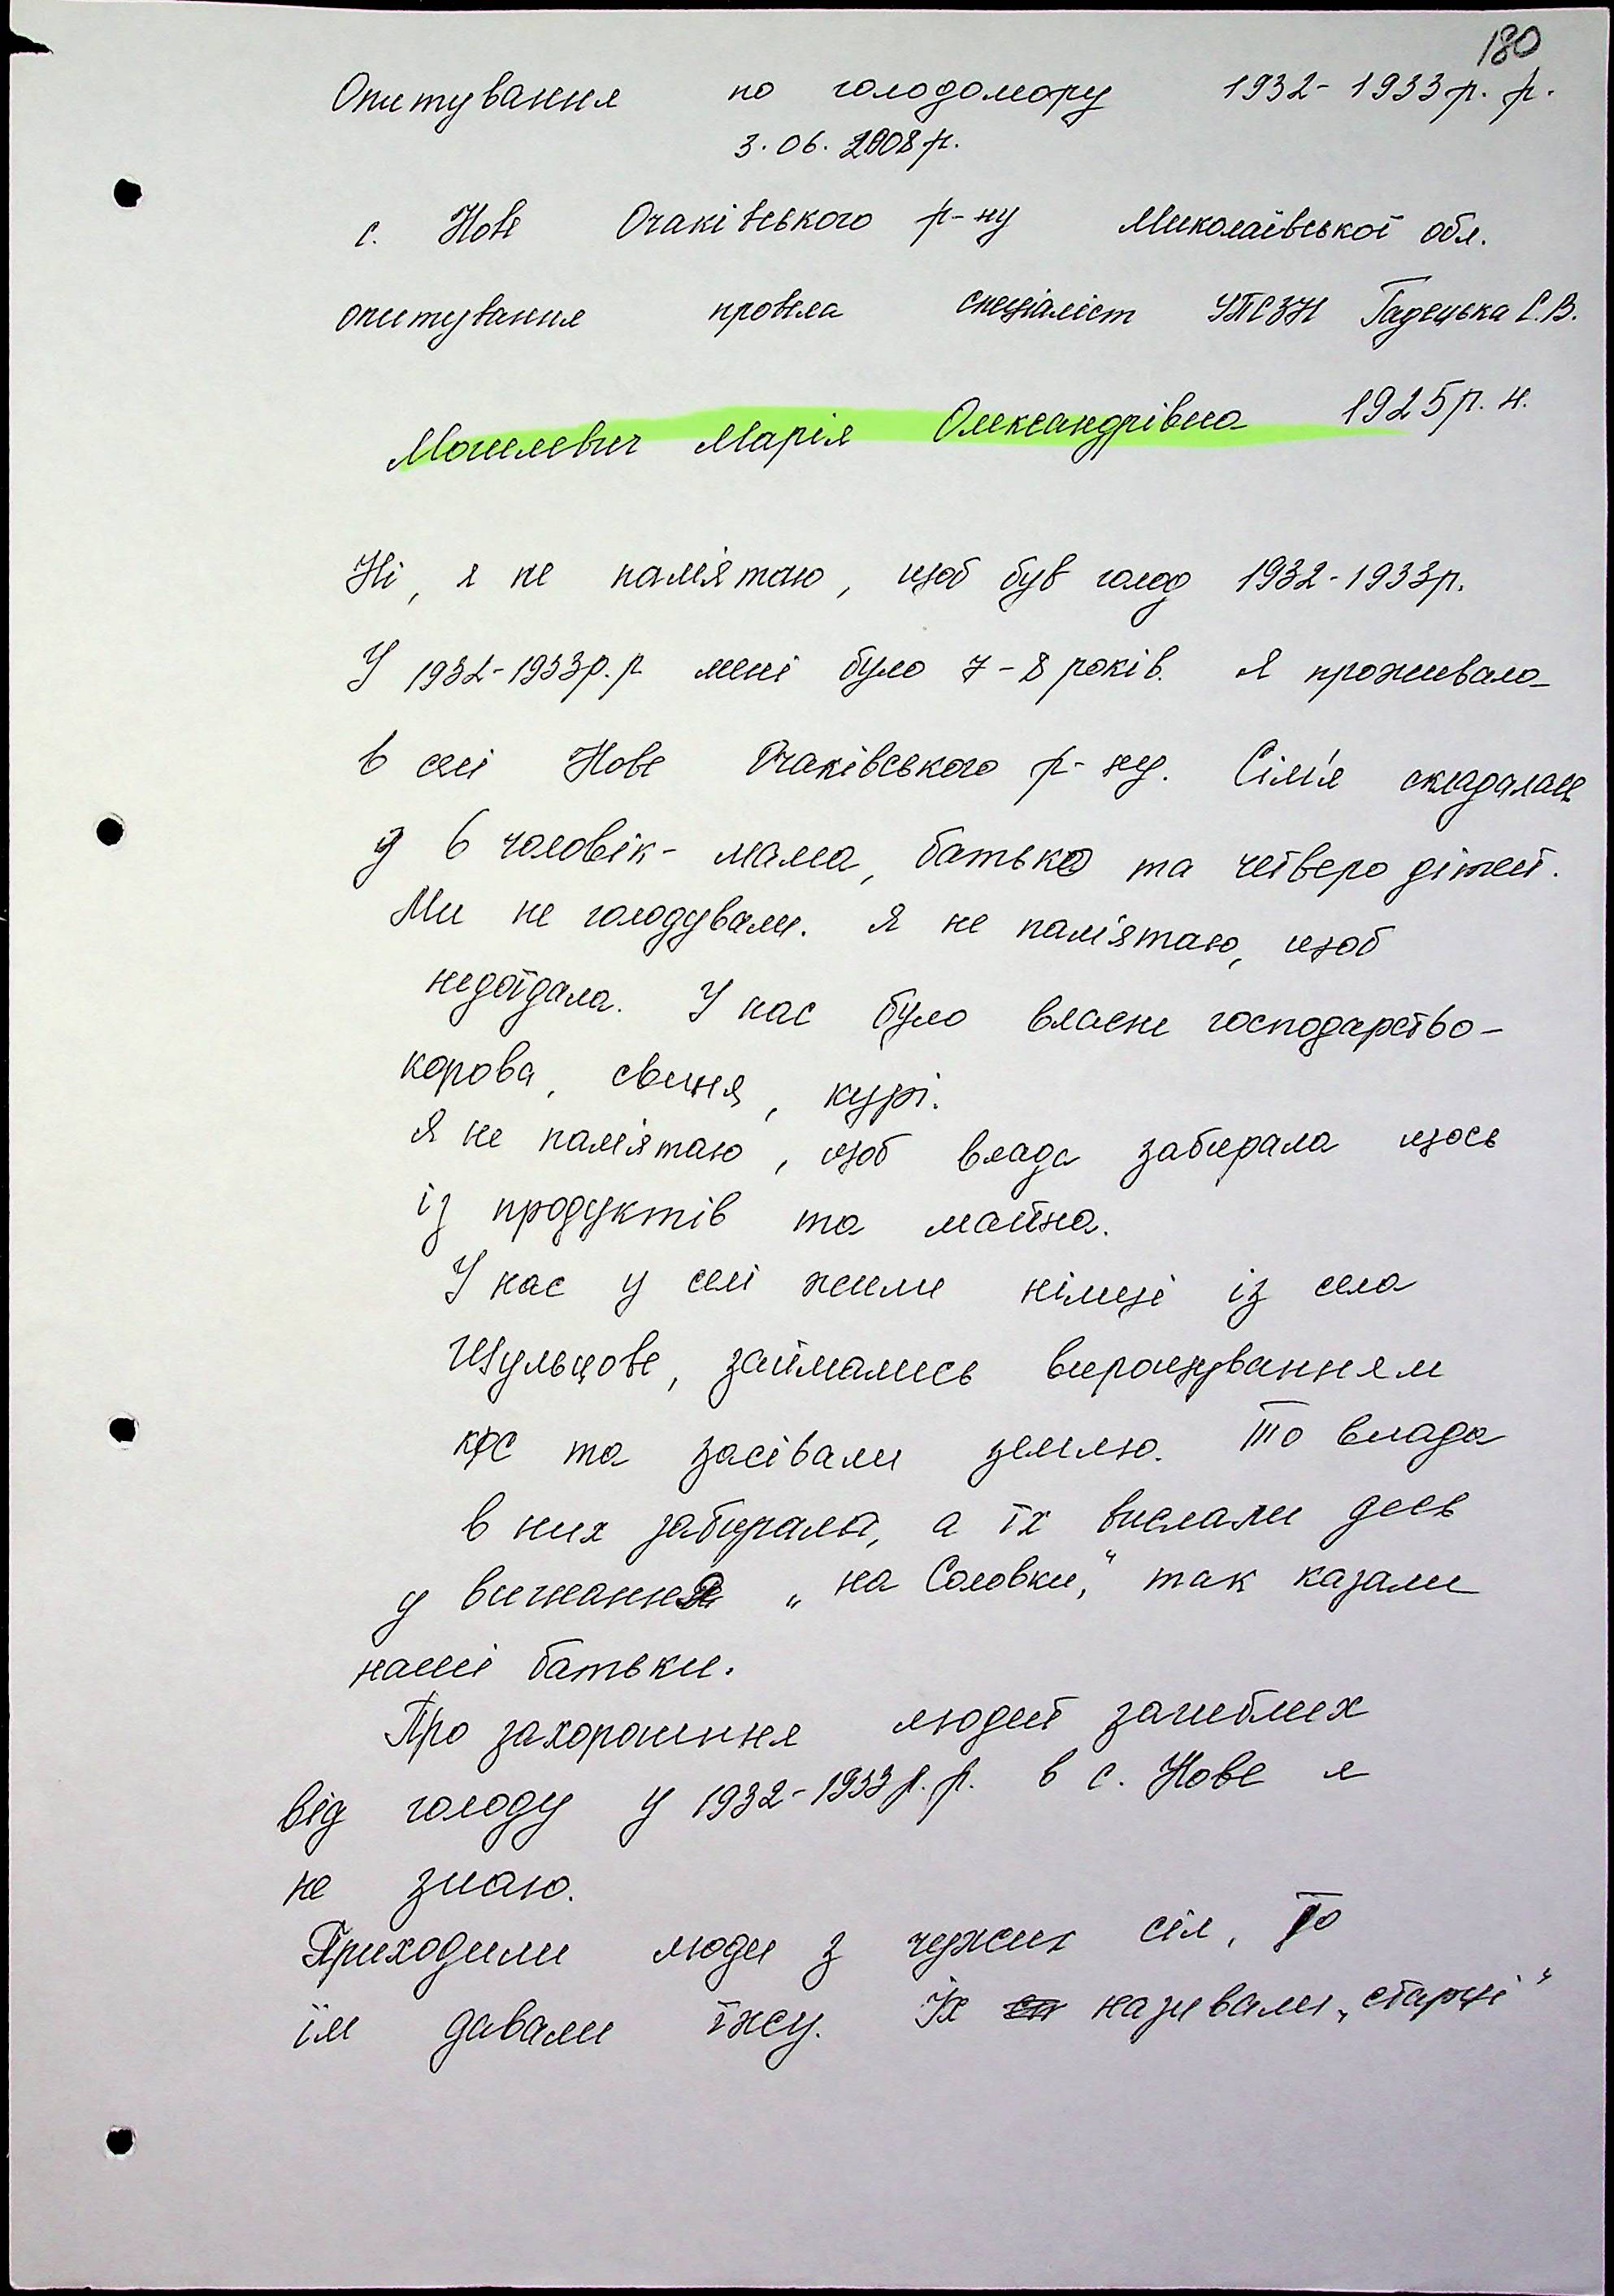 180
Опитування по голодомору 1932-1933р. р.
3.06.2008р.
с. Нове Очаківського р-ну Миколаївської обл.
опитування провела спеціаліст УПСЗН Гадецька Є.В.
Могилевич Марія Олександрівна 1925р. н.
Ні, я не пам'ятаю, щоб був голод 1932-1933р.
У 1932-1933р.р мені було 7-8 років. Я проживала
в селі Нове Очаківського р-ну. Сім'я складалась
з 6 чоловік - мама, батько та четверо дітей.
Ми не голодували. Я не пам'ятаю, щоб
недоїдала. У нас було власне господарство -
корова, свиня, курі.
Я не пам'ятаю, щоб влада забирала щось
із продуктів та майна.
У нас у селі жили німці із села
Шульцове, займались вирощуванням
КРС та засівали землю. То влада
в них забирала, а їх вислали десь
у вигнання „на Соловки," так казали
наші батьки.
Про захорошння людей загиблих
від голоду у 1932-1933р.р. в с. Нове я
не знаю.
Приходили люди з чужих сіл, то
їм давали їжу. Їх називали „старці"